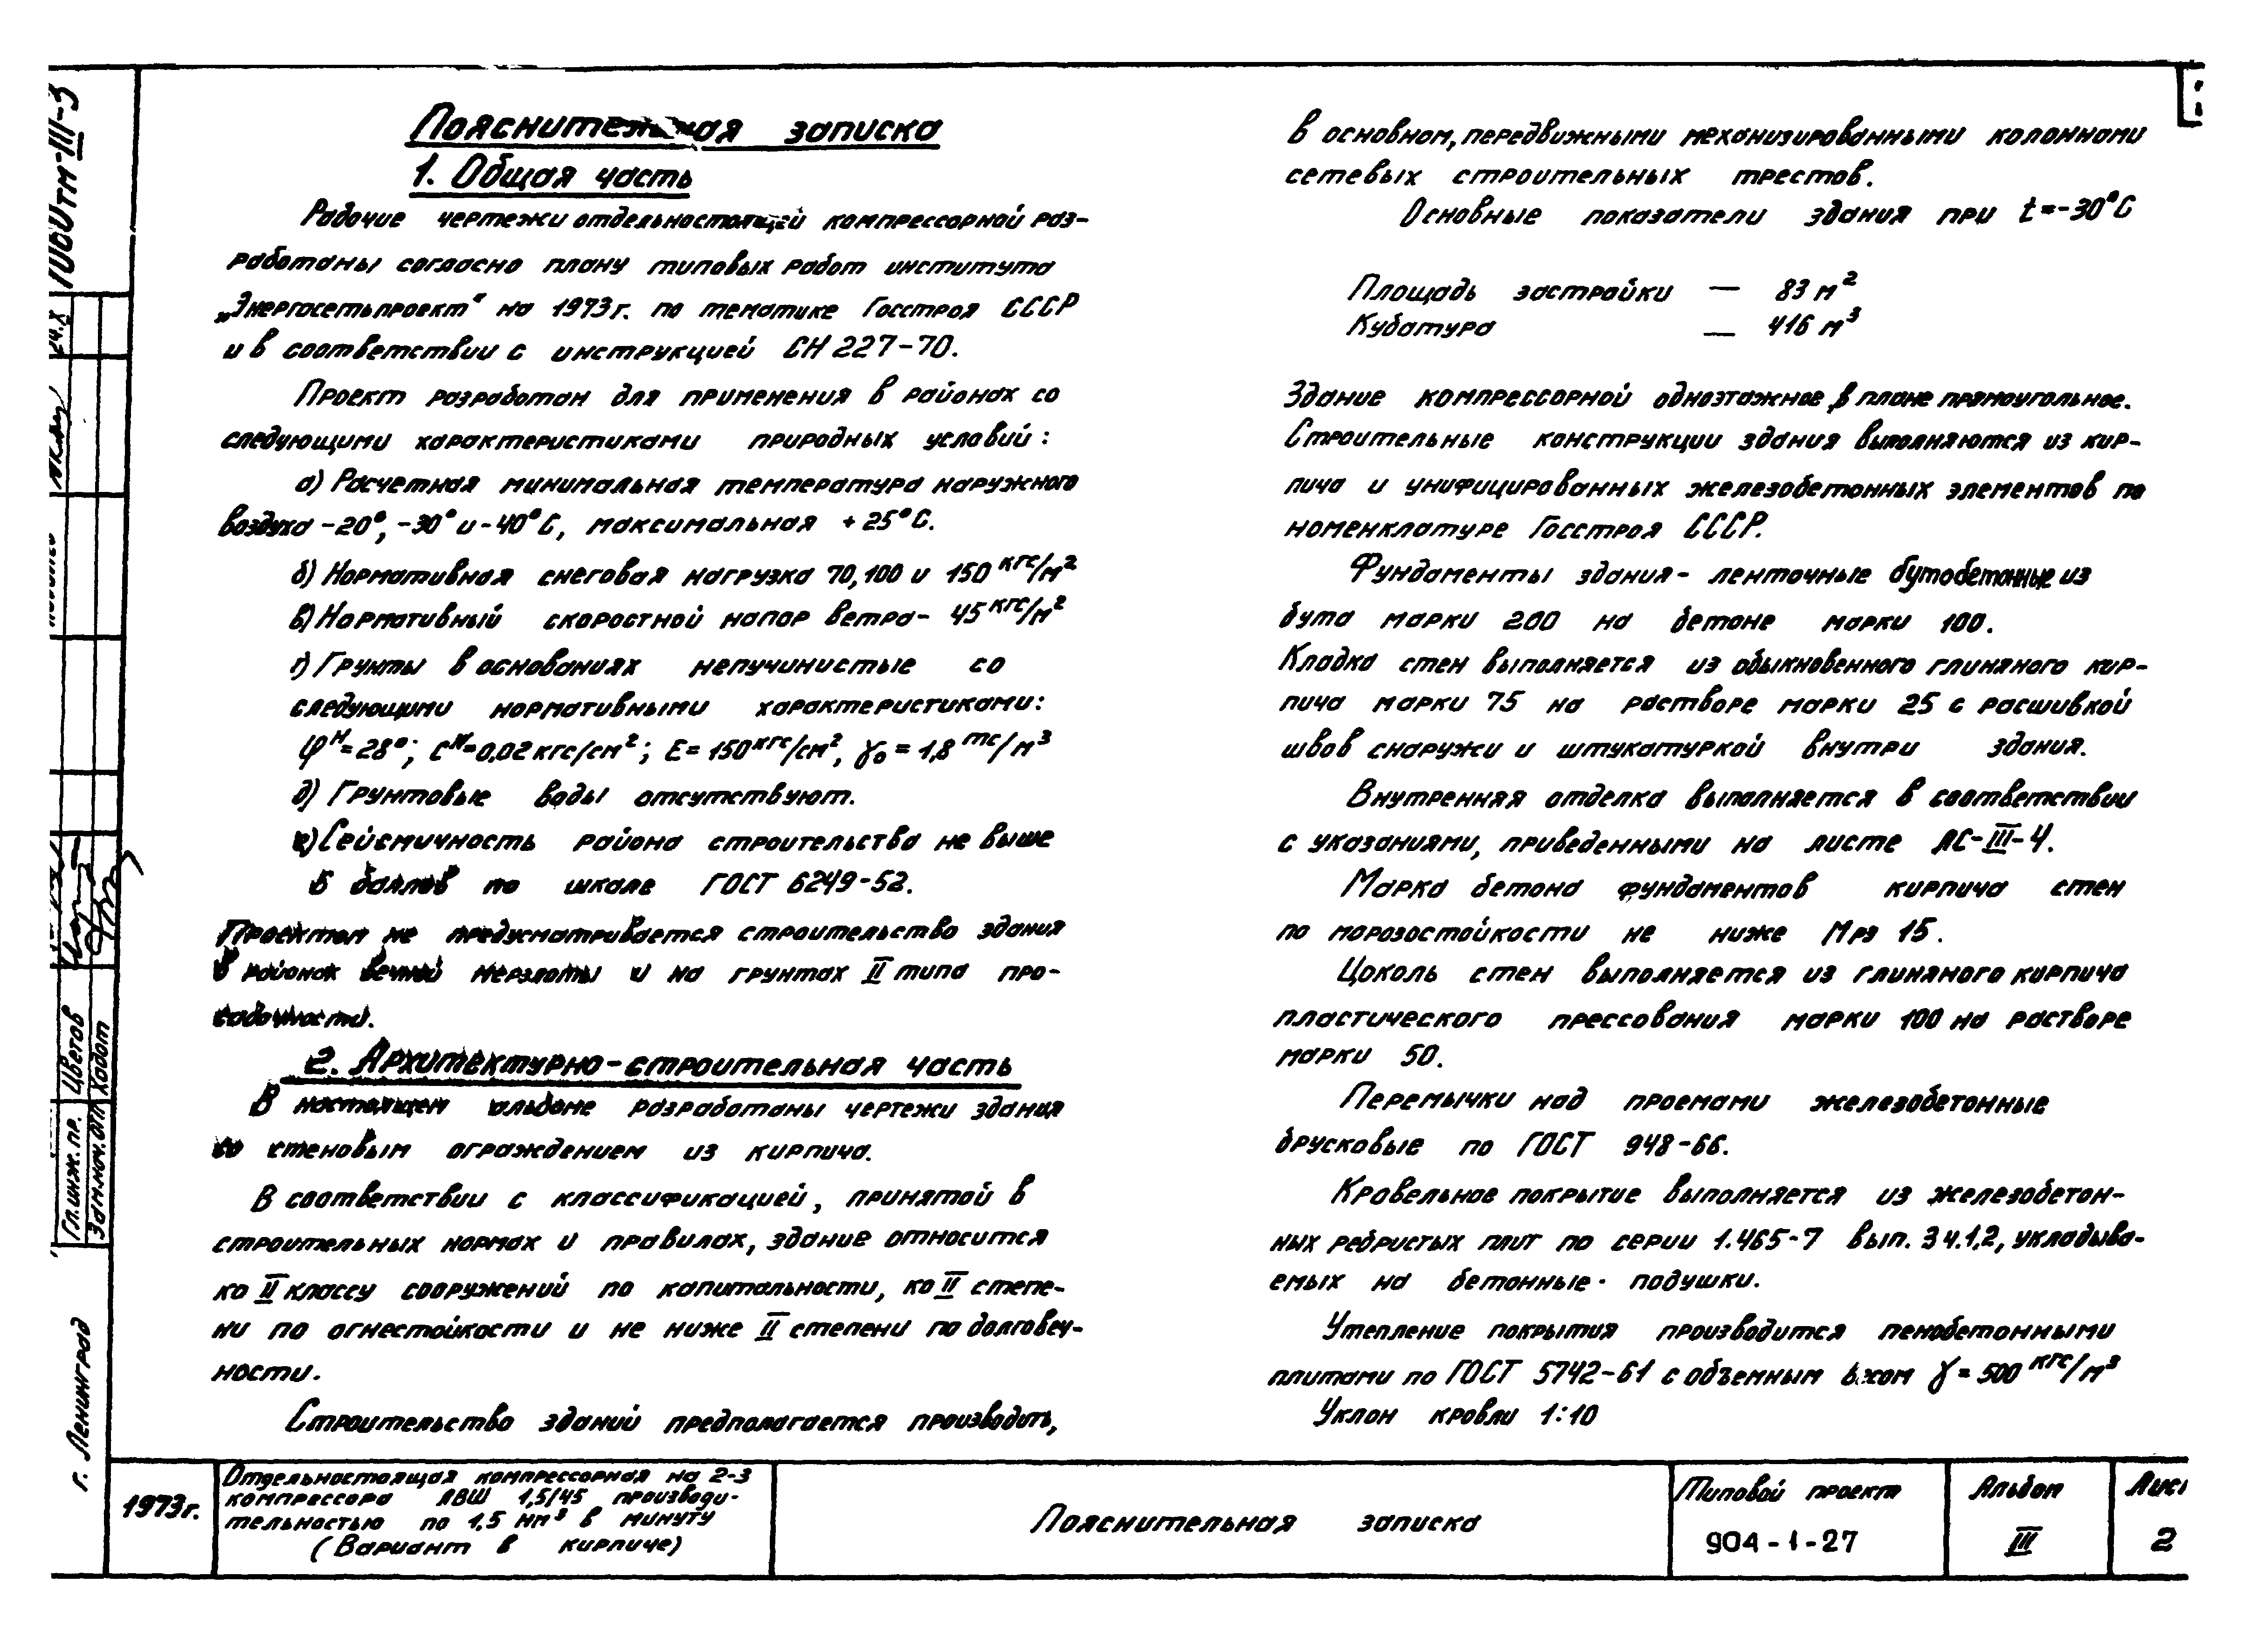 Пояснительная записка
1. Общая часть
Рабочие чертежи отдельностоящей компрессорной раз-
работаны согласно плану типовых работ института
„Энергосетьпроект“ на 1973г. по тематике Госстроя СССР
и в соответствии с инструкцией СН 227-70.
Проект разработан для применения в районах со
следующими характеристиками природных условий:
а) Расчетная минимальная температура наружного
воздуха -20°, -30° и -40°С, максимальная +25°С.
б) Нормативная снеговая нагрузка 70,100 и 150 кгс/м²
в) Нормативный скоростной напор ветра- 45 кгс/м²
г) Грунты в основаниях непучинистые со
следующими нормативными характеристиками:
φᴴ=28°; Cᴴ=0,02 кгс/см²; E=150 кгс/см², γ₀=1,8 тс/м³
д) Грунтовые воды отсутствуют.
е) Сейсмичность района строительства не выше
6 баллов по шкале ГОСТ 6249-52.
Проектом не предусматривается строительство здания
в районах вечной мерзлоты и на грунтах II типа про-
садочности.
2. Архитектурно-строительная часть
В настоящем альбоме разработаны чертежи здания
со стеновым ограждением из кирпича.
В соответствии с классификацией, принятой в
строительных нормах и правилах, здание относится
ко II классу сооружений по капитальности, ко II степе-
ни по огнестойкости и не ниже II степени по долговеч-
ности.
Строительство зданий предполагается производить,
в основном, передвижными механизированными колоннами
сетевых строительных трестов.
Основные показатели здания при t=-30°С
Площадь застройки — 83 м²
Кубатура — 416 м³
Здание компрессорной одноэтажное в плане прямоугольное.
Строительные конструкции здания выполняются из кир-
пича и унифицированных железобетонных элементов по
номенклатуре Госстроя СССР.
Фундаменты здания- ленточные бутобетонные из
бута марки 200 на бетоне марки 100.
Кладка стен выполняется из обыкновенного глиняного кир-
пича марки 75 на растворе марки 25 с расшивкой
швов снаружи и штукатуркой внутри здания.
Внутренняя отделка выполняется в соответствии
с указаниями, приведенными на листе АС-III-4.
Марка бетона фундаментов кирпича стен
по морозостойкости не ниже Мрз 15.
Цоколь стен выполняется из глиняного кирпича
пластического прессования марки 100 на растворе
марки 50.
Перемычки над проемами железобетонные
брусковые по ГОСТ 948-66.
Кровельное покрытие выполняется из железобетон-
ных ребристых плит по серии 1.465-7 вып. 3 ч.1,2, укладыва-
емых на бетонные подушки.
Утепление покрытия производится пенобетонными
плитами по ГОСТ 5742-61 с объемным весом γ=500 кгс/м³
Уклон кровли 1:10
24.X
Гл.инж.пр. Цветов
Зам.нач.ОТП Хадот
г. Ленинград
1973г.
Отдельностоящая компрессорная на 2-3
компрессора АВШ 1,5/45 производи-
тельностью по 1,5 нм³ в минуту
(Вариант в кирпиче)
Пояснительная записка
Типовой проект
904-1-27
Альбом
III
Лис
2